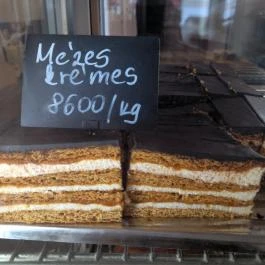 Mézes
krémes
8600/kg